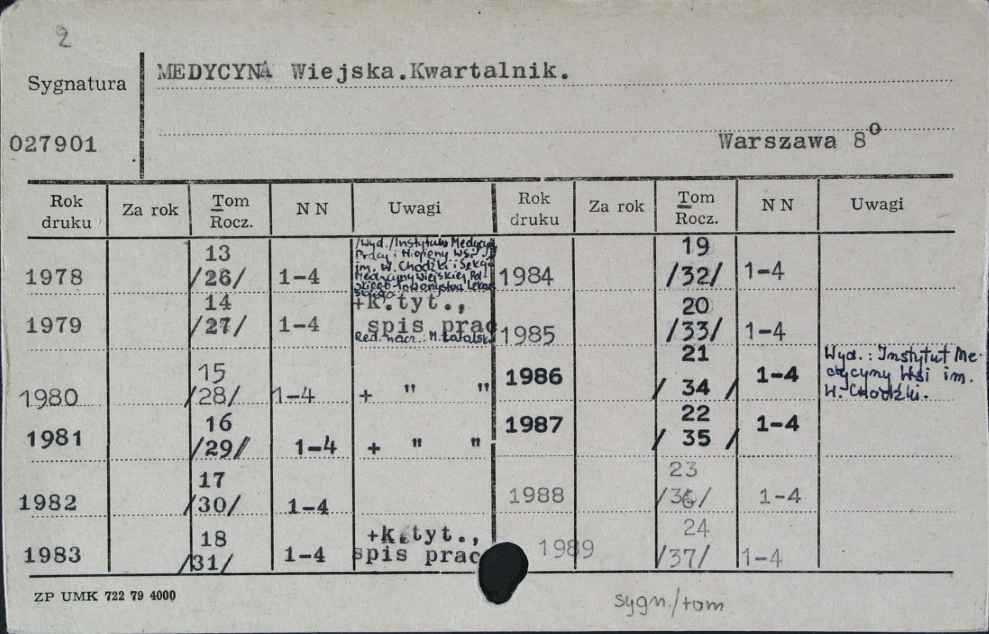 2
Sygnatura
MEDYCYNA Wiejska.Kwartalnik.
027901
Warszawa 8°
Rok druku Za rok Tom Rocz. N N Uwagi Rok druku Za rok Tom Rocz. N N Uwagi
1978 13 /26/ 1-4 /Wyd./Instytutu Medycyny Pracy i Higieny Wsi im. W. Chodźki i Sekcja Medycyny Wiejskiej 1984 19 /32/ 1-4
1979 14 /27/ 1-4 +k.tyt., spis prac Red. nacz.: M. 1985 20 /33/ 1-4
1980 15 /28/ 1-4 + " " 1986 21 / 34 / 1-4 Wyd.: Instytut Medycyny Wsi im. W. Chodźki.
1981 16 /29/ 1-4 + " " 1987 22 / 35 / 1-4
1982 17 /30/ 1-4 1988 23 /36/ 1-4
1983 18 /31/ 1-4 +k.tyt., spis prac 1989 24 /37/ 1-4
ZP UMK 722 79 4000
sygn./tom